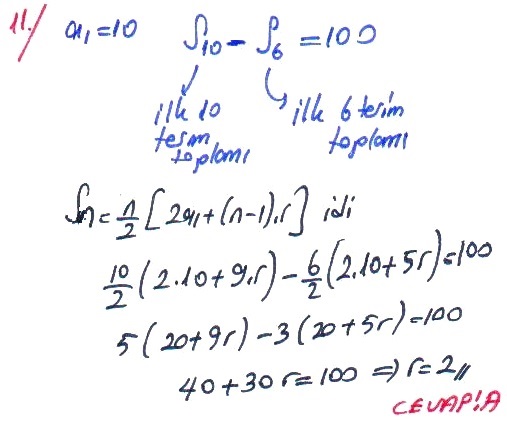 11./ a₁=10 S₁₀ - S₆ = 100
ilk 10 terim toplamı
ilk 6 terim toplamı
Sn = n/2 [2a₁+(n-1).r] idi
10/2 (2.10+9.r) - 6/2 (2.10+5r)=100
5(20+9r) - 3(20+5r)=100
40+30r=100 ⇒ r=2//
CEVAP:A